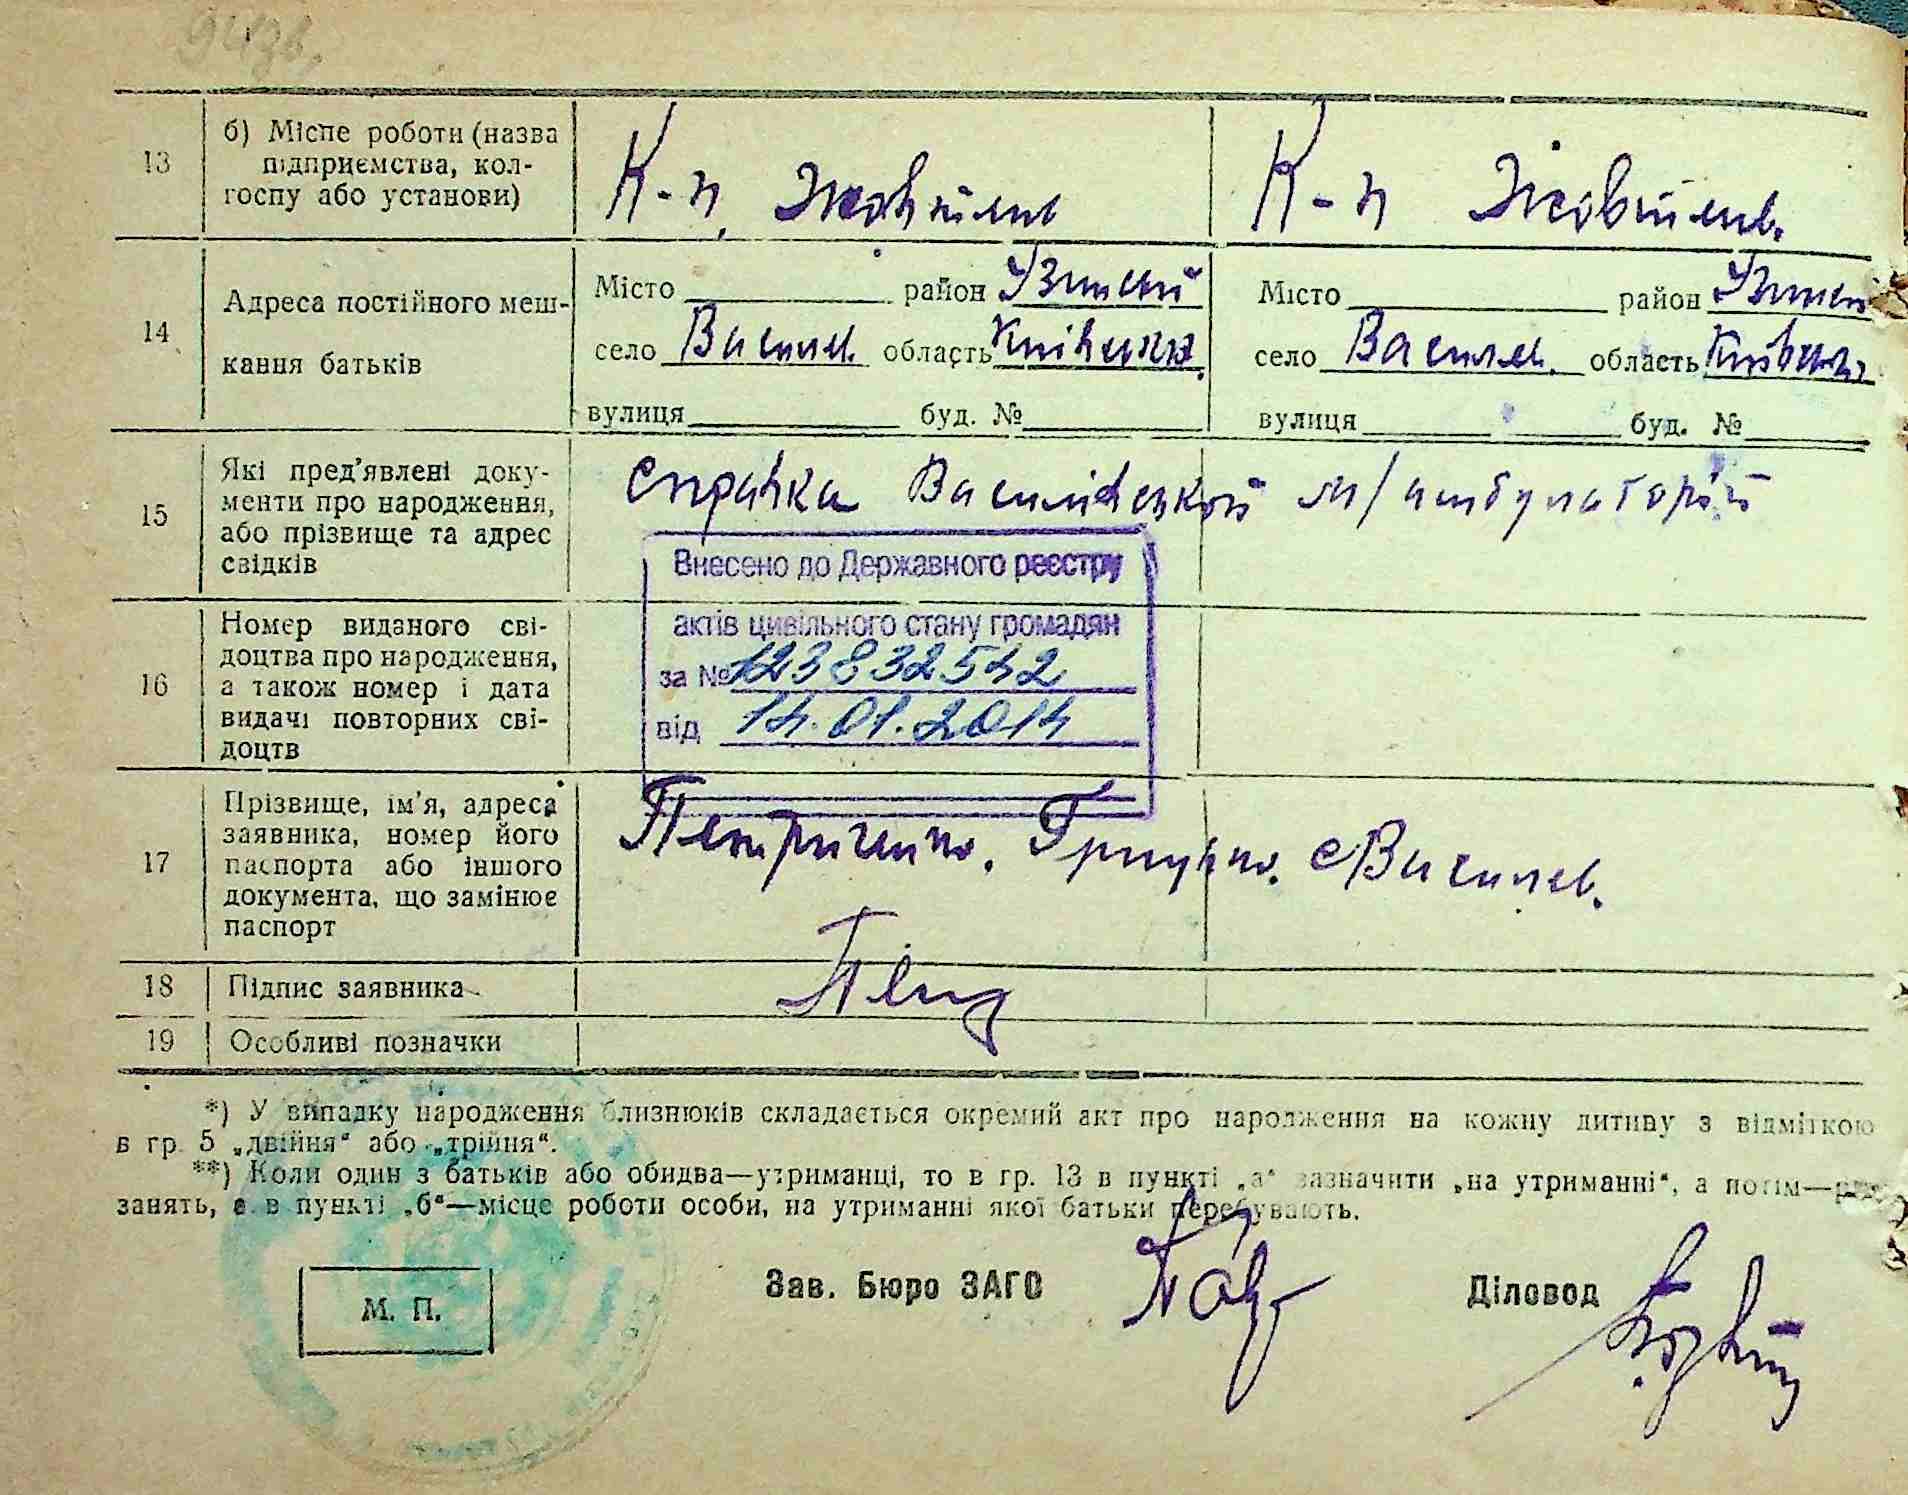 13 б) Місце роботи (назва підприємства, колгоспу або установи) К-п Жовтень К-п Жовтень
14 Адреса постійного меш-
кання батьків
Місто район Узинськ Місто район Узинськ
село Василев. область Київська село Василев. область Київська
вулиця буд. № вулиця буд. №
15 Які пред'явлені доку-
менти про народження,
або прізвище та адрес
свідків
Справка Василівецкой м/амбулаторій
Внесено до Державного реєстру
актів цивільного стану громадян
за № 123832542
від 14.01.2014
16 Номер виданого сві-
доцтва про народження,
а також номер і дата
видачі повторних сві-
доцтв
17 Прізвище, ім'я, адреса
заявника, номер його
паспорта або іншого
документа, що замінює
паспорт
с Василев.
18 Підпис заявника
19 Особливі позначки
*) У випадку народження близнюків складається окремий акт про народження на кожну дитину з відміткою
в гр. 5 „двійня“ або „трійня“.
**) Коли один з батьків або обидва—утриманці, то в гр. 13 в пункті „а“ зазначити „на утриманні“, а потім—
занять, а в пункті „б“—місце роботи особи, на утриманні якої батьки перебувають.
М. П.
Зав. Бюро ЗАГС Діловод